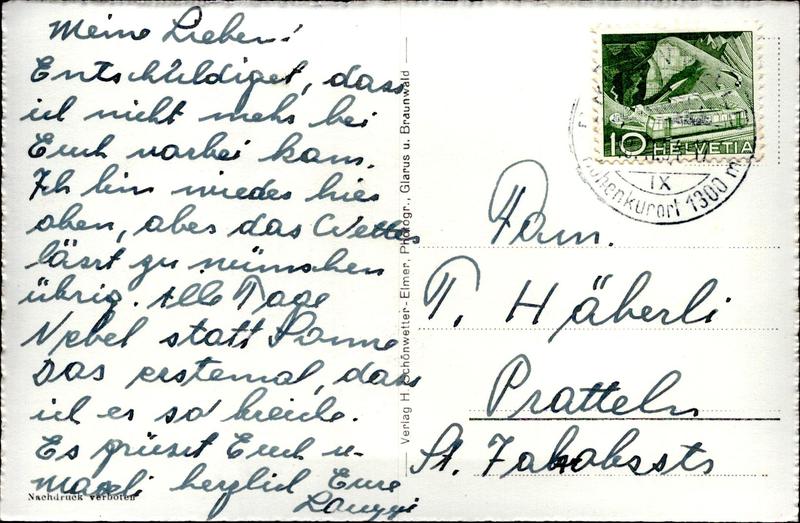 Meine Lieben!
Entschuldiget, dass
ich nicht mehr bei
Euch vorbei kam.
Ich bin wieder hier
oben, aber das Wetter
lässt zu wünschen
übrig. Alle Tage
Nebel statt Sonne
Das erstemal, dass
ich es so breiche.
Es grüsst Euch u-
herzlich Eure
Nachdruck verboten
Verlag H. Schönwetter-Elmer, Photogr., Glarus u. Braunwald
10 HELVETIA
IX
Höhenkurort 1300 m
Fam.
T. Häberli
Pratteln
St. Jakobsstr